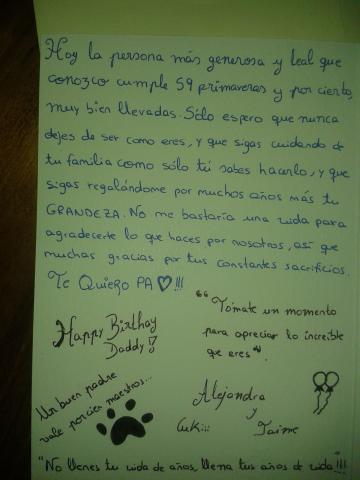 Hoy la persona más generosa y leal que
conozco cumple 59 primaveras y por cierto,
muy bien llevadas. Sólo espero que nunca
dejes de ser como eres, y que sigas cuidando de
tu familia como sólo tú sabes hacerlo, y que
sigas regalándome por muchos años más tu
GRANDEZA. No me bastaría una vida para
agradecerte lo que haces por nosotros, así que
muchas gracias por tus constantes sacrificios.
Te Quiero PA ♡!!!
"Tómate un momento
para apreciar lo increíble
que eres".
Happy Birthay
Daddy!
Un buen padre
vale por cien maestros...
Alejandra
y
Cuki... Jaime
"No llenes tu vida de años, llena tus años de vida"!!!